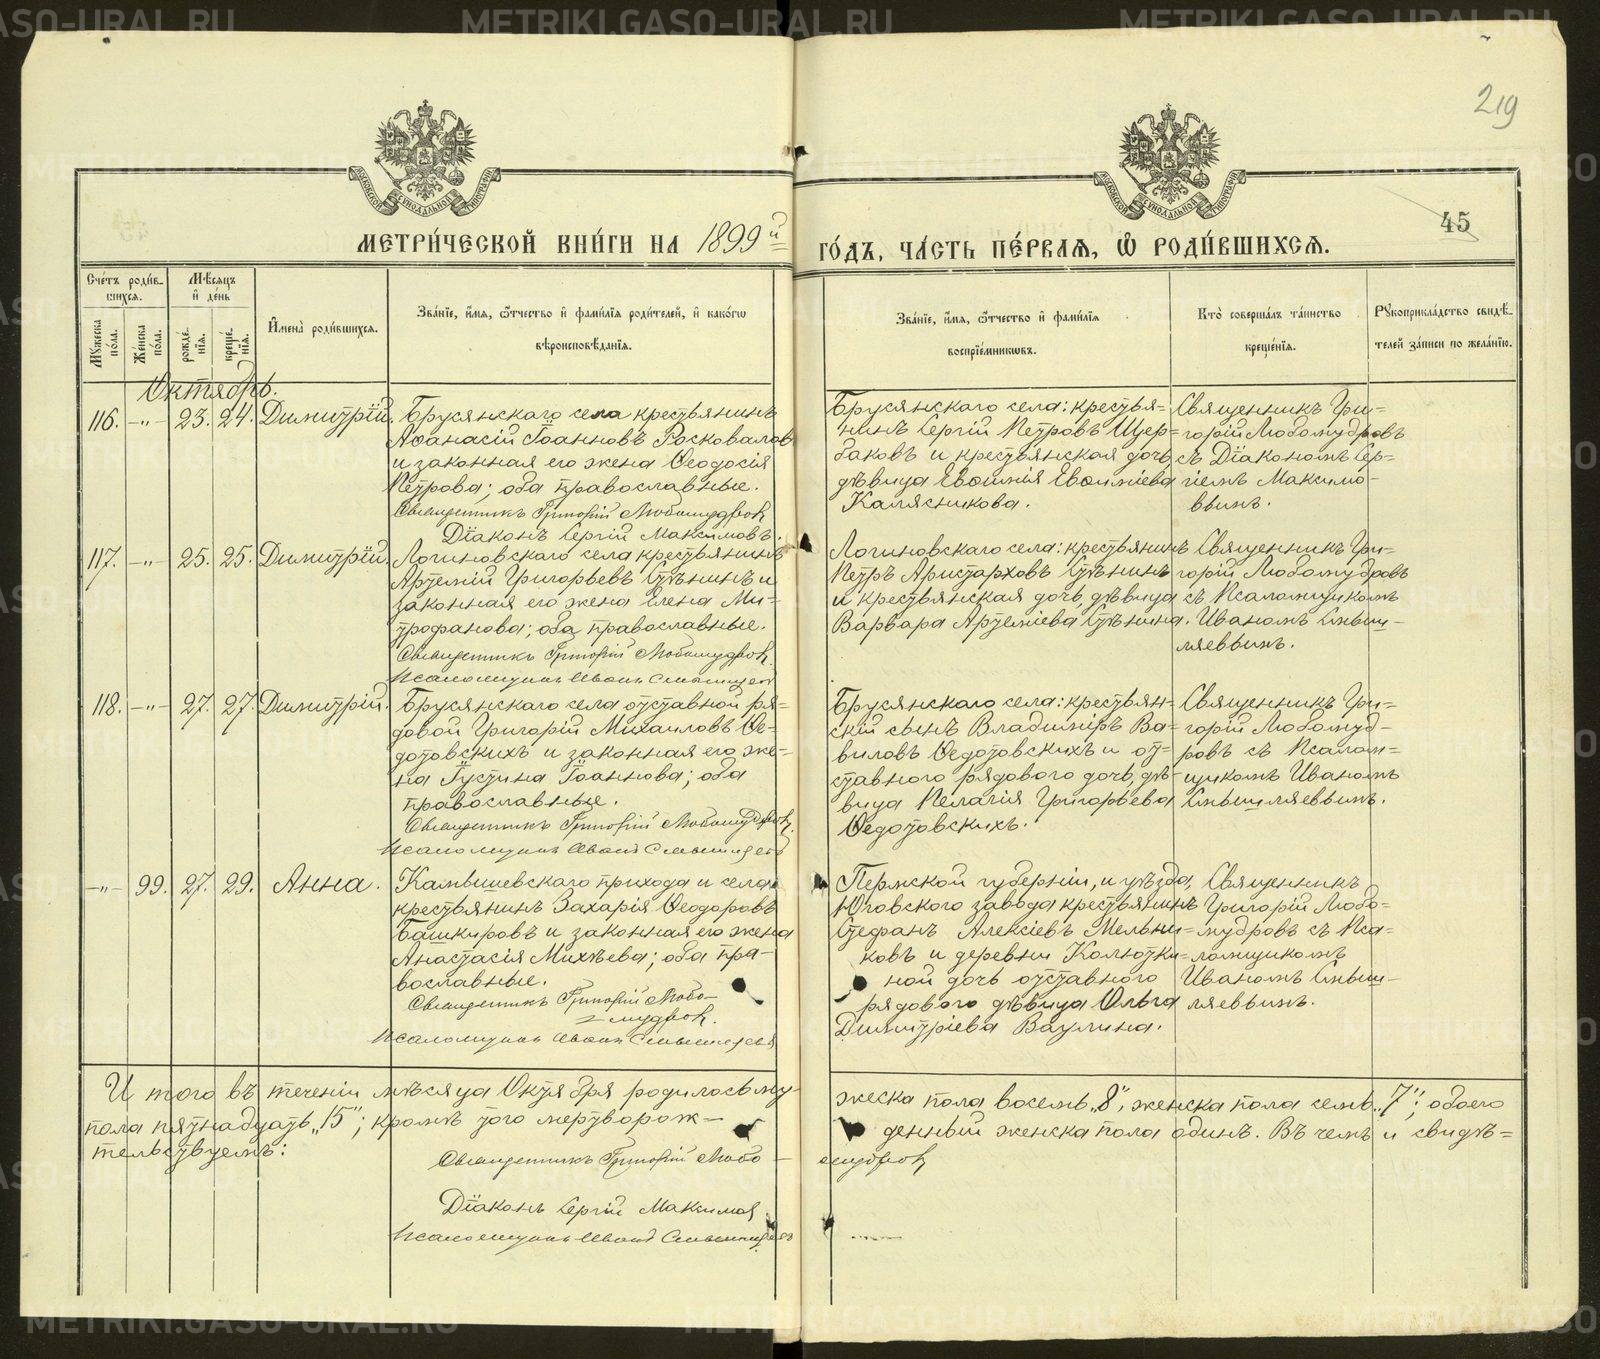 219
45
МЕТРИ́ЧЕСКОЙ КНИ́ГИ НА 1899й ГО́ДЪ, ЧА́СТЬ ПЕ́РВАѦ, Ѽ РОДИ́ВШИХСѦ.
Сче́тъ роди́в-
шихся.
Мѣ́сяцъ
и де́нь
Мꙋжеска по́ла.
Же́нска по́ла.
рожде́-
нїя.
креще́-
нїя.
И҆мена̀ роди́вшихся.
Зва́нїе, и҆́мя, ѻ҆́тчество и҆ фами́лїя роди́телей, и҆ како́гѡ
вѣроисповѣ́данїя.
Зва́нїе, и҆́мя, ѻ҆́тчество и҆ фами́лїя
воспрїе́мникѡвъ.
Кто̀ соверша́лъ та́инство
креще́нїя.
Рꙋкоприкла́дство свидѣ́-
телей за́писи по жела́нїю.
Октябрь.
116. -"- 23. 24. Димитрій.
Брусянскаго села крестьянинъ
Аѳанасій Іоанновъ Росковалов
и законная его жена Ѳеодосія
Петрова; оба православные.
Священникъ Григорій Любомудров
Діаконъ Сергій Максимовъ.
Брусянскаго села: крестья-
нинъ Сергій Петровъ Щер-
баковъ и крестьянская дочь
дѣвица Евѳимія Евѳиміева
Калясникова.
Священникъ Гри-
горій Любомудровъ
съ Діакономъ Сер-
гіемъ Максимо-
вымъ.
117. -"- 25. 25. Димитрій.
Логиновскаго села крестьянинъ
Артемій Григорьевъ Стѣнинъ и
законная его жена Елена Ми-
трофанова; оба православные.
Священникъ Григорій Любомудров.
Псаломщикъ Иванъ Смышляев
Логиновскаго села: крестьянинъ
Петръ Аристарховъ Стѣнинъ
и крестьянская дочь, дѣвица
Варвара Артеміева Стѣнина.
Священникъ Гри-
горій Любомудровъ
съ Псаломщикомъ
Иваномъ Смыш-
ляевымъ.
118. -"- 27. 27. Димитрій.
Брусянскаго села отставной ря-
довой Григорій Михаиловъ Ѳе-
дотовскихъ и законная его же-
на Іустина Іоаннова; оба
православные.
Священникъ Григорій Любомудров.
Псаломщикъ Иванъ Смышляев
Брусянскаго села: крестьян-
скій сынъ Владиміръ Ва-
виловъ Ѳедотовскихъ и от-
ставного рядового дочь, дѣ-
вица Пелагія Григорьева
Ѳедотовскихъ.
Священникъ Гри-
горій Любомуд-
ровъ съ Псалом-
щикомъ Иваномъ
Смышляевымъ.
-"- 99. 27. 29. Анна.
Камышевскаго прихода и села
крестьянинъ Захарія Ѳеодоровъ
Башкировъ и законная его жена
Анастасія Михѣева; оба пра-
вославные.
Священникъ Григорій Любо-
мудров.
Псаломщикъ Иванъ Смышляев
Пермской губерніи, и уѣзда,
Юговского завода крестьянинъ
Стефанъ Алексіевъ Мельни-
ковъ и деревни Колютки-
ной дочь отставного
рядового дѣвица Ольга
Димитріева Ваулина.
Священникъ
Григорій Любо-
мудровъ съ Пса-
ломщикомъ
Иваномъ Смыш-
ляевымъ.
И того въ теченіи мѣсяца Октября родилось му-
жеска пола восемь „8", женска пола семь „7"; обоего
пола пятнадцать „15"; кромѣ того мертворож-
денный женска пола одинъ. Въ чемъ и свидѣ-
тельствуемъ:
Священникъ Григорій Любо-
мудров
Діаконъ Сергій Максимов
Псаломщикъ Иванъ Смышляев
METRIKI.GASO-URAL.RU